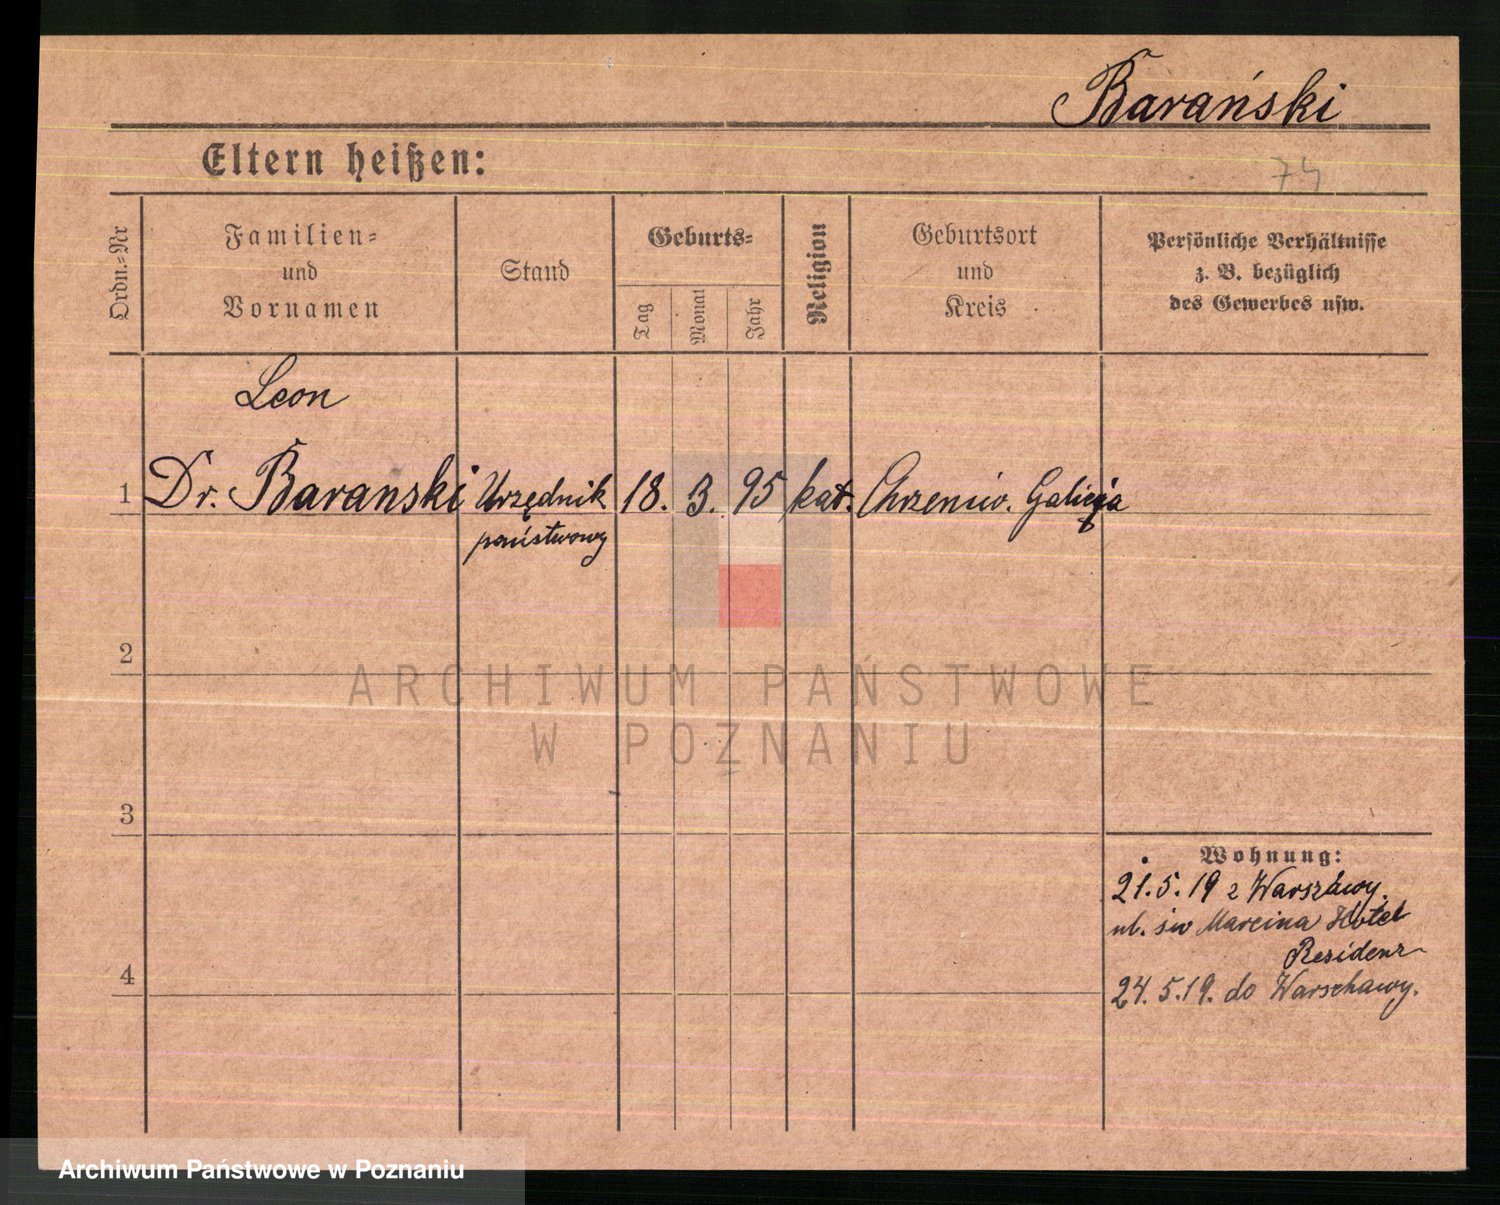 Barański
Eltern heißen:
74
Ordn.-Nr
Familien-
und
Vornamen
Stand
Geburts-
Tag
Monat
Jahr
Religion
Geburtsort
und
Kreis
Persönliche Verhältnisse
z. B. bezüglich
des Gewerbes usw.
Leon
1 Dr. Baranski Urzędnik 18. 3. 95 kat. Galicja
państwowy
2
3
4
Wohnung:
21.5.19 z Warszawy.
ul. św Marcina Hotel
Residenz
24.5.19. do Warschawy.
ARCHIWUM PAŃSTWOWE
W POZNANIU
Archiwum Państwowe w Poznaniu